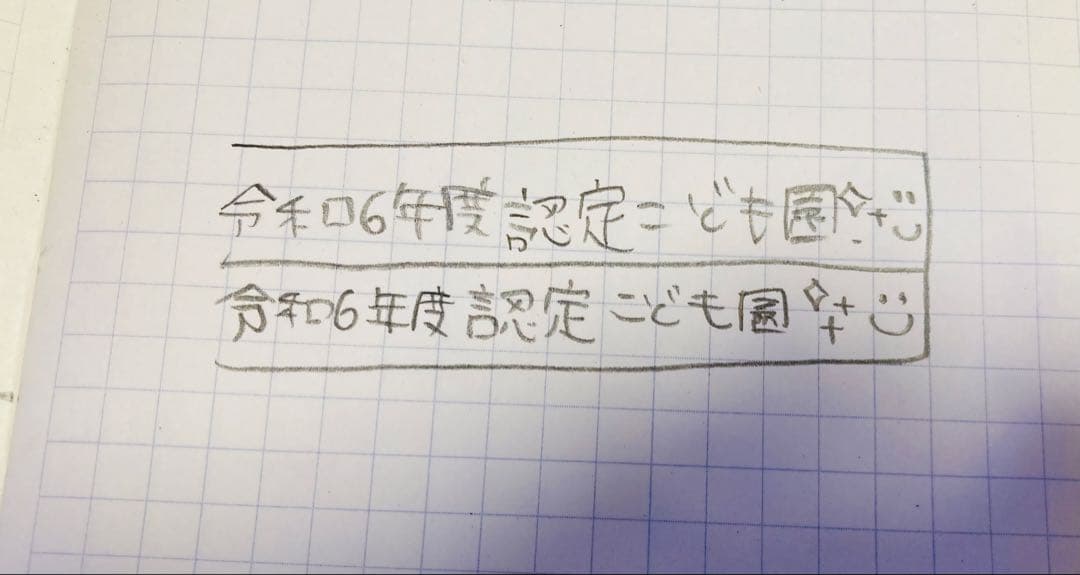 令和6年度認定こども園
令和6年度認定こども園